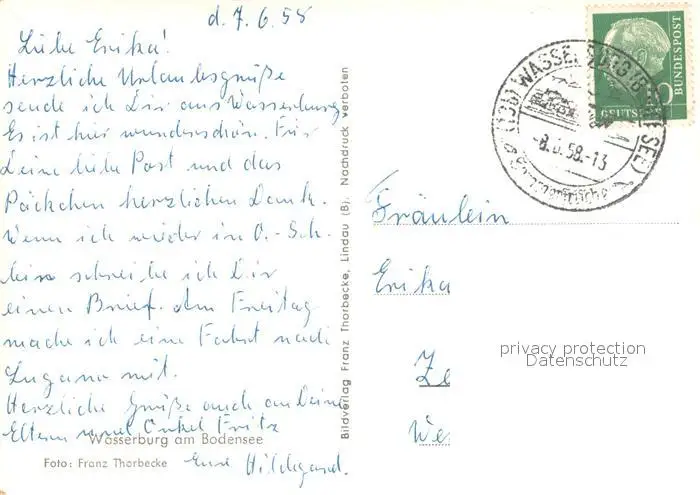 d. 7.6.58
Liebe Erika!
Herzliche Urlaubsgrüße
sende ich Dir aus Wasserburg
Es ist hier wunderschön. Für
Deine liebe Post und das
Päckchen herzlichen Dank.
Wenn ich wieder in O.-Sch.
bin schreibe ich Dir
einen Brief. Am Freitag
mache ich eine Fahrt nach
Lugano mit.
Herzliche Grüße auch an Deine
Eltern und Onkel Fritz
Eure Hildegard.
Wasserburg am Bodensee
Foto: Franz Thorbecke
Bildverlag Franz Thorbecke, Lindau (B). Nachdruck verboten
DEUTSCHE
BUNDESPOST
10
(13b) WASSERBURG (BODENSEE)
-8.6.58.-13
Fräulein
Erika
Ze
We
privacy protection
Datenschutz